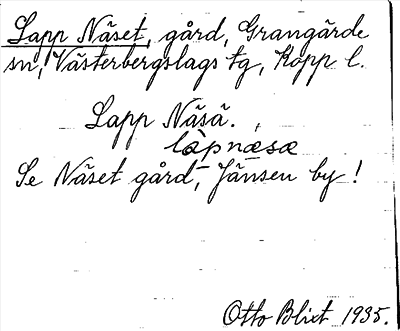 Lapp Näset, gård, Grangärde
sn, Västerbergslags tg, Kopp l.
Lapp Näsä.
làpnæsæ
Se Näset gård, Jänsen by!
Otto Blixt 1935.